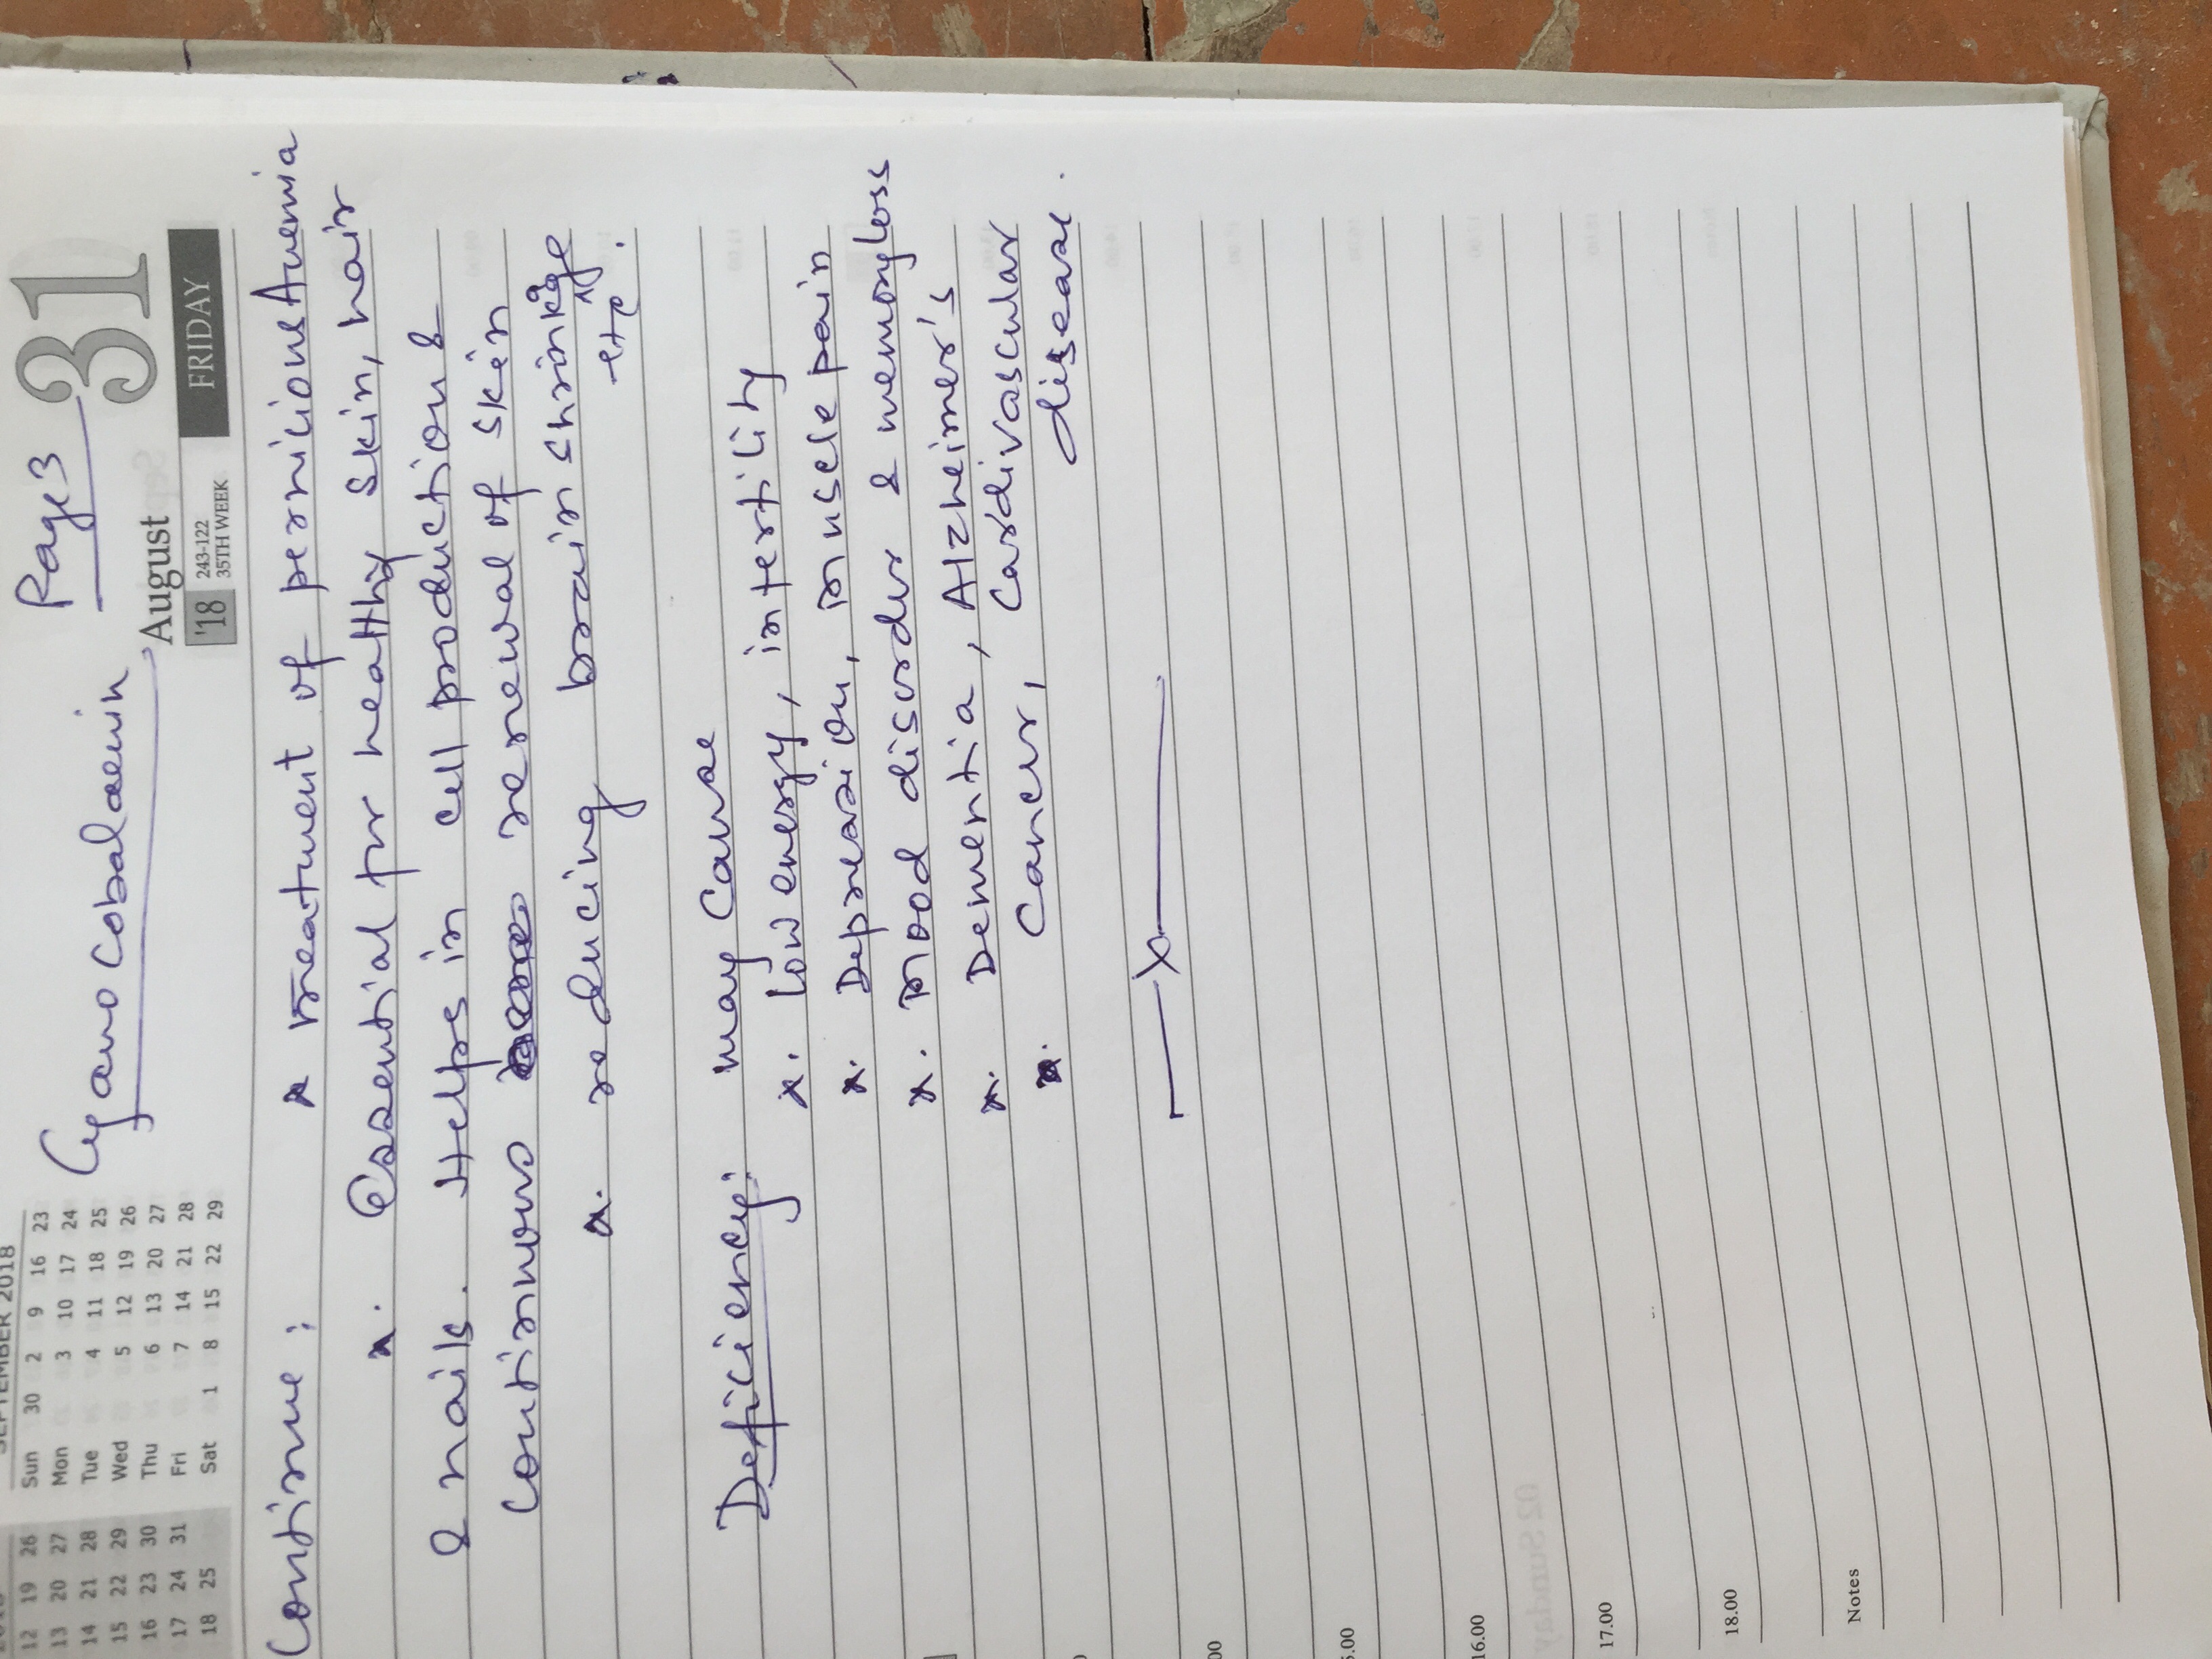 Page 3
Cyanocobalamin
August
31
'18
243-122
35TH WEEK
FRIDAY
SEPTEMBER 2018
Sun 30 2 9 16 23
Mon 3 10 17 24
Tue 4 11 18 25
Wed 5 12 19 26
Thu 6 13 20 27
Fri 7 14 21 28
Sat 1 8 15 22 29
12 19 26
13 20 27
14 21 28
15 22 29
16 23 30
17 24 31
18 25
Continue : x treatment of pernicious Anemia
x. Essential for healthy skin, hair
& nails. Helps in cell production &
Continuous renewal of skin
x. reducing brain shrinkage
etc.
Deficiency: may Cause
x. low energy, infertility
x. Depression, muscle pain
x. mood disorder & memory loss
x. Dementia, Alzheimer's
x. Cancer, Cardivascular
disease.
x
16.00
17.00
18.00
Notes